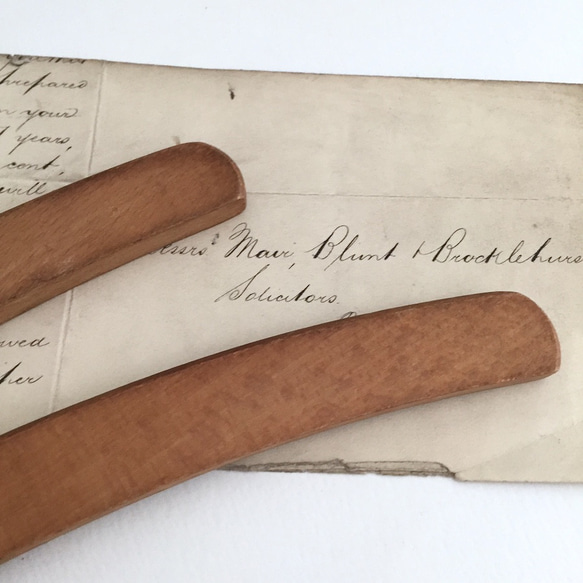 prepared
your
years,
cent,
will
Mair, Blunt & Brocklehurs
Solicitors.
her